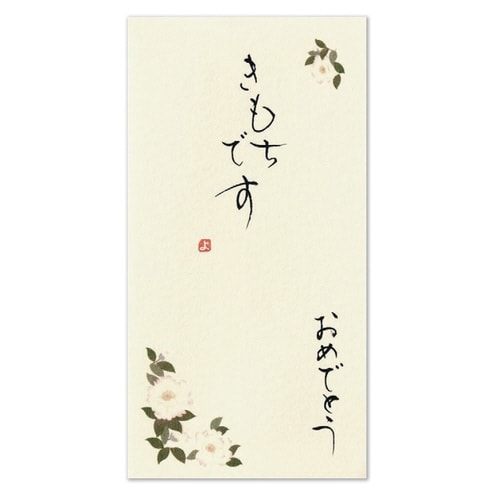 おめでとう
きもち
です
よ